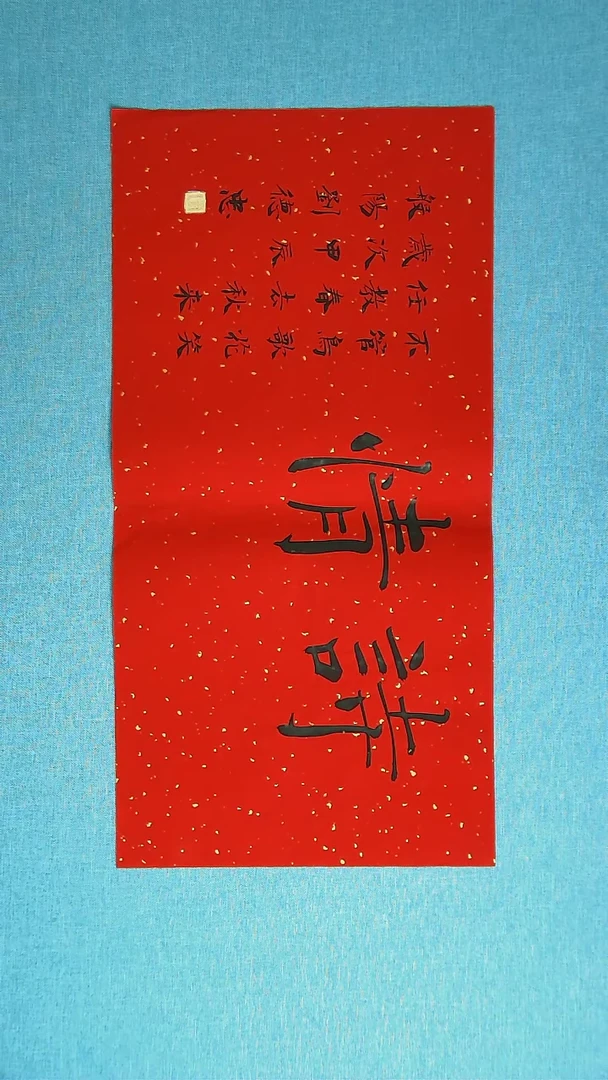 詩情
不管鳥歌花笑
任教春去秋來
歲次甲辰
般陽劉德忠